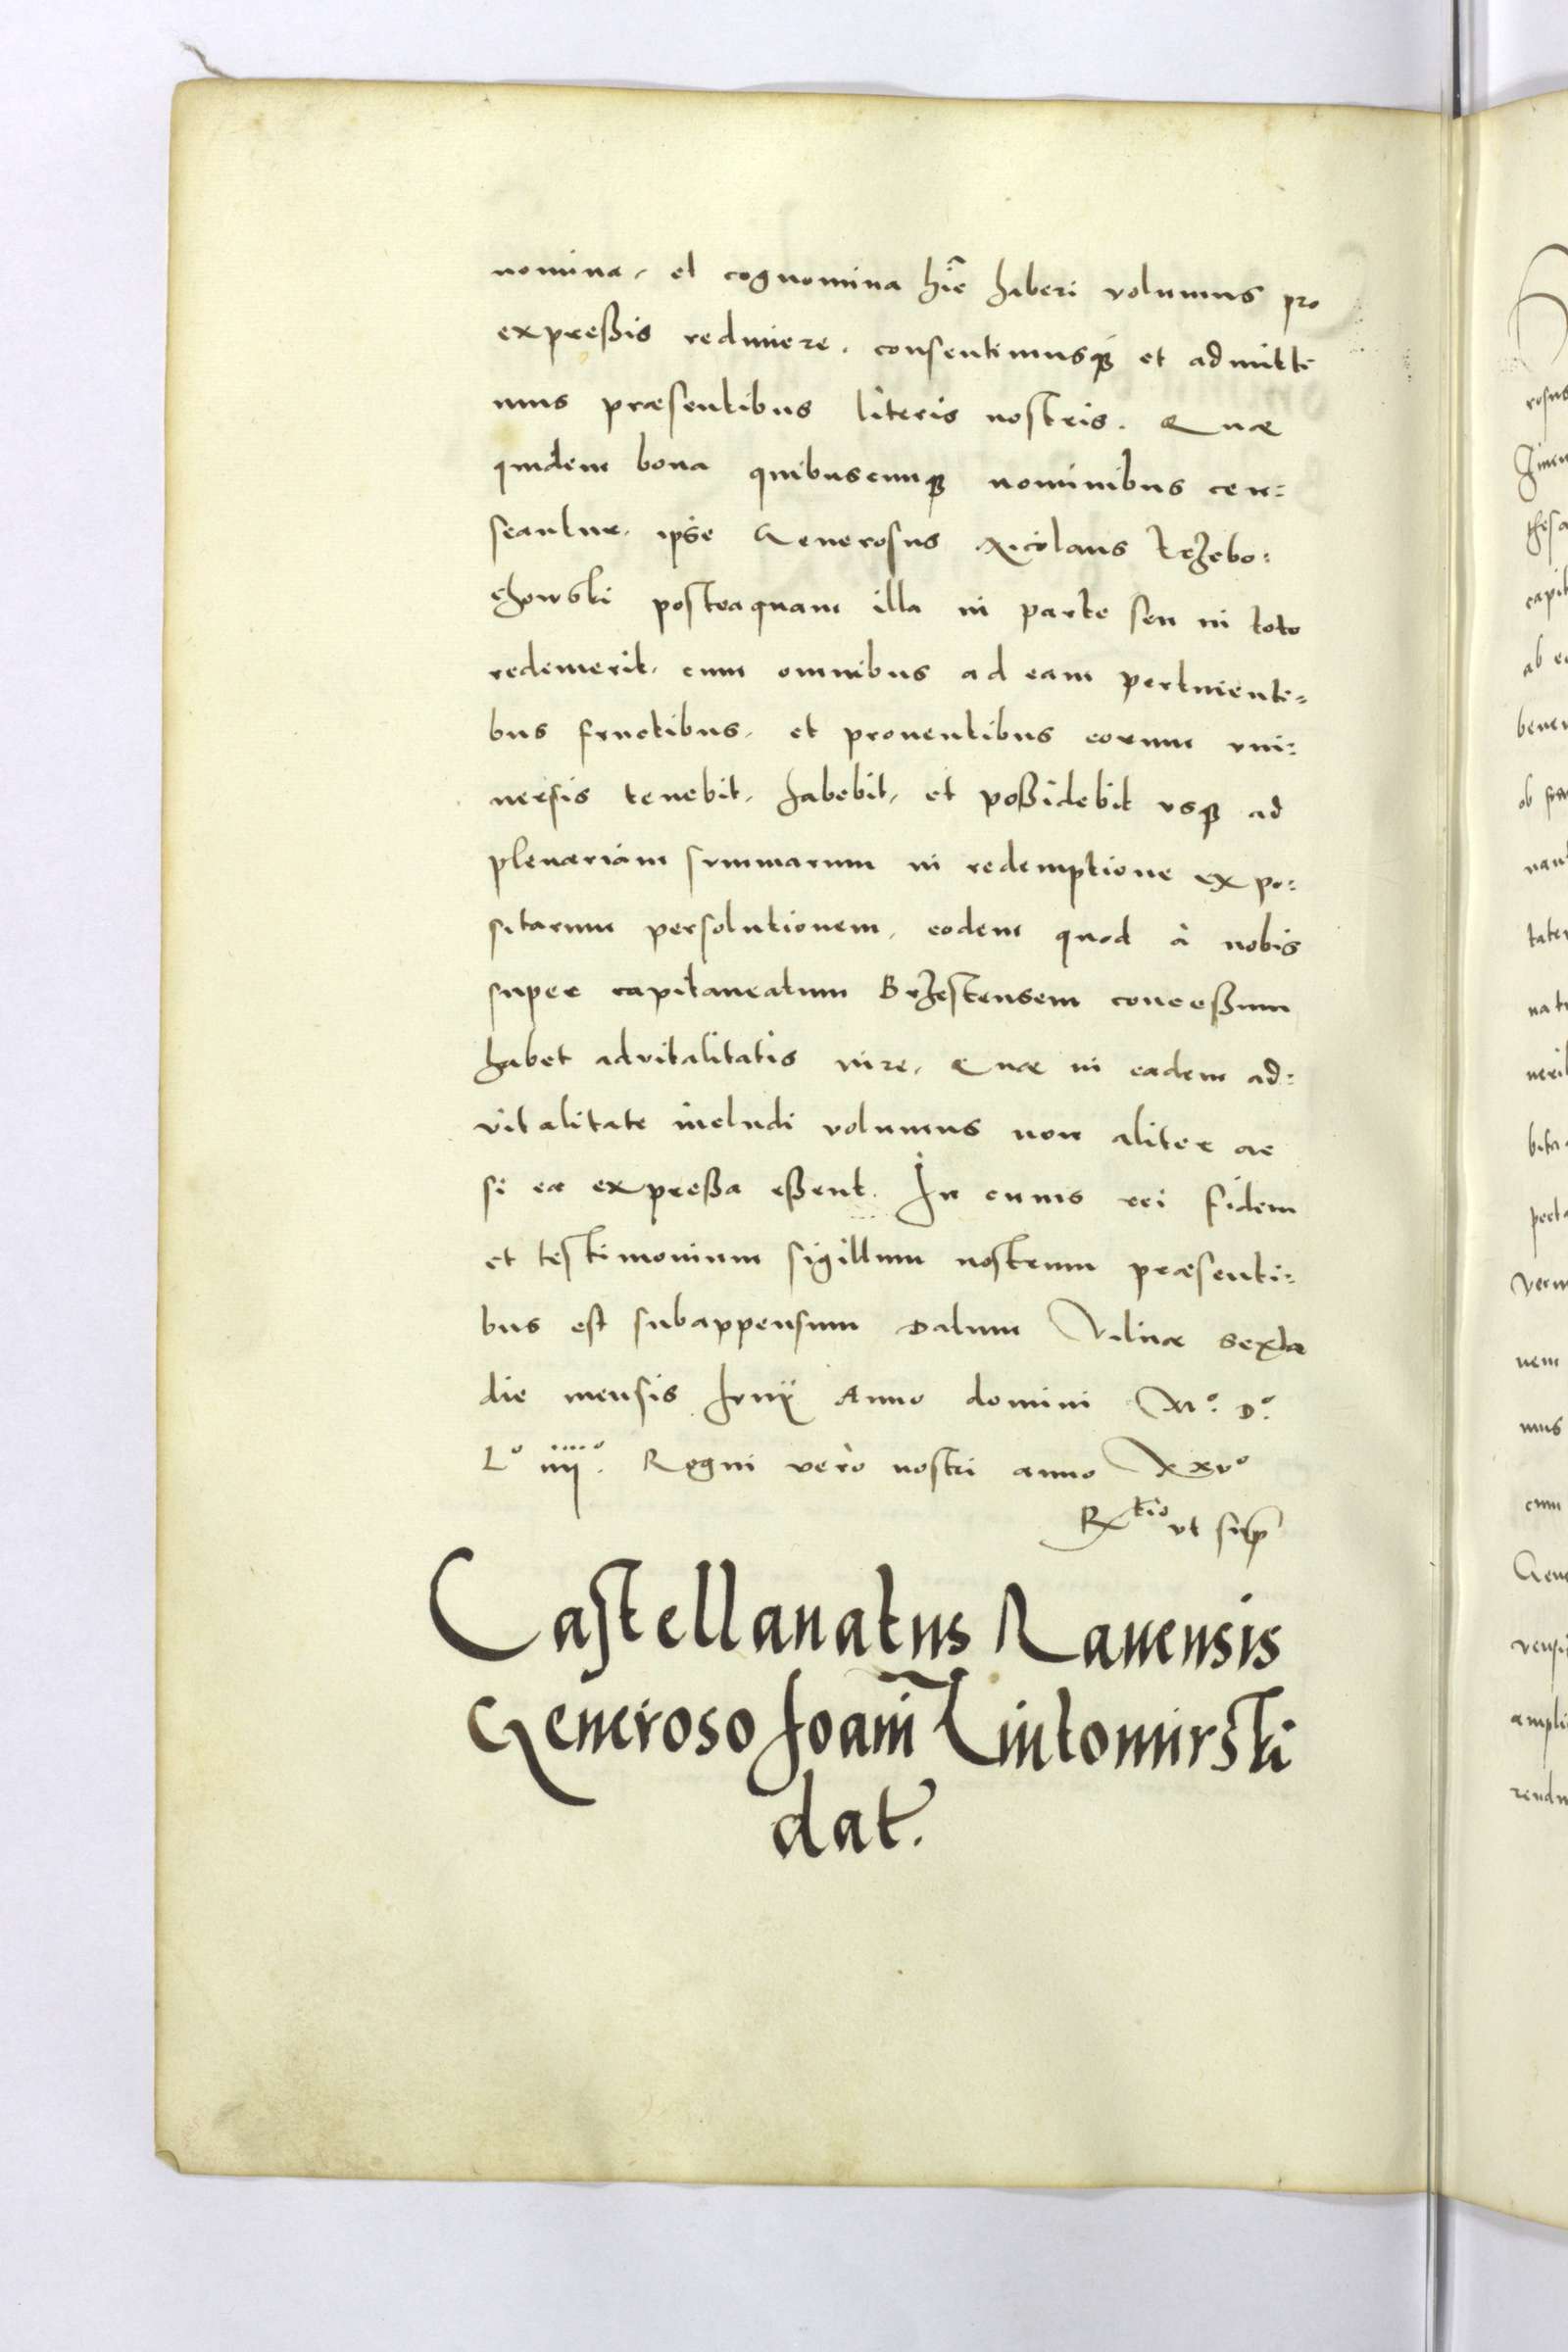 nomina, et cognomina hic̃ haberi volumus pro
expreßis redimere, consentimusqꝫ et admitti
mus præsentibus literis nostris. Quæ
quidem bona quibuscunqꝫ nominibus cen=
seantur, ipse Generosus Nicolaus Trzebo=
chowski posteaquam illa in parte seu in toto
redemerit, cum omnibus ad eam pertinenti=
bus fructibus, et prouentibus eorum vni=
uersis tenebit, habebit, et poßidebit vsqꝫ ad
plenariam summarum in redemptione expo=
sitarum persolutionem, eodem quod à nobis
super capitaneatum Brzestensem conceßum
habet aduitalitatis iure, Quæ in eadem ad=
vitalitate includi volumus non aliter ac
si ea expreßa eßent. In cuius rei fidem
et testimonium sigillum nostrum præsenti=
bus est subappensum Datum Vilnæ sexta
die mensis Junij Anno domini Mº. Dº.
Lº iiijº. Regni vero nostri anno XXVº
R<sup>tio</sup> vt sup̃
Castellanatus Rauensis
Generoso Joañi Lutomirski
dat.